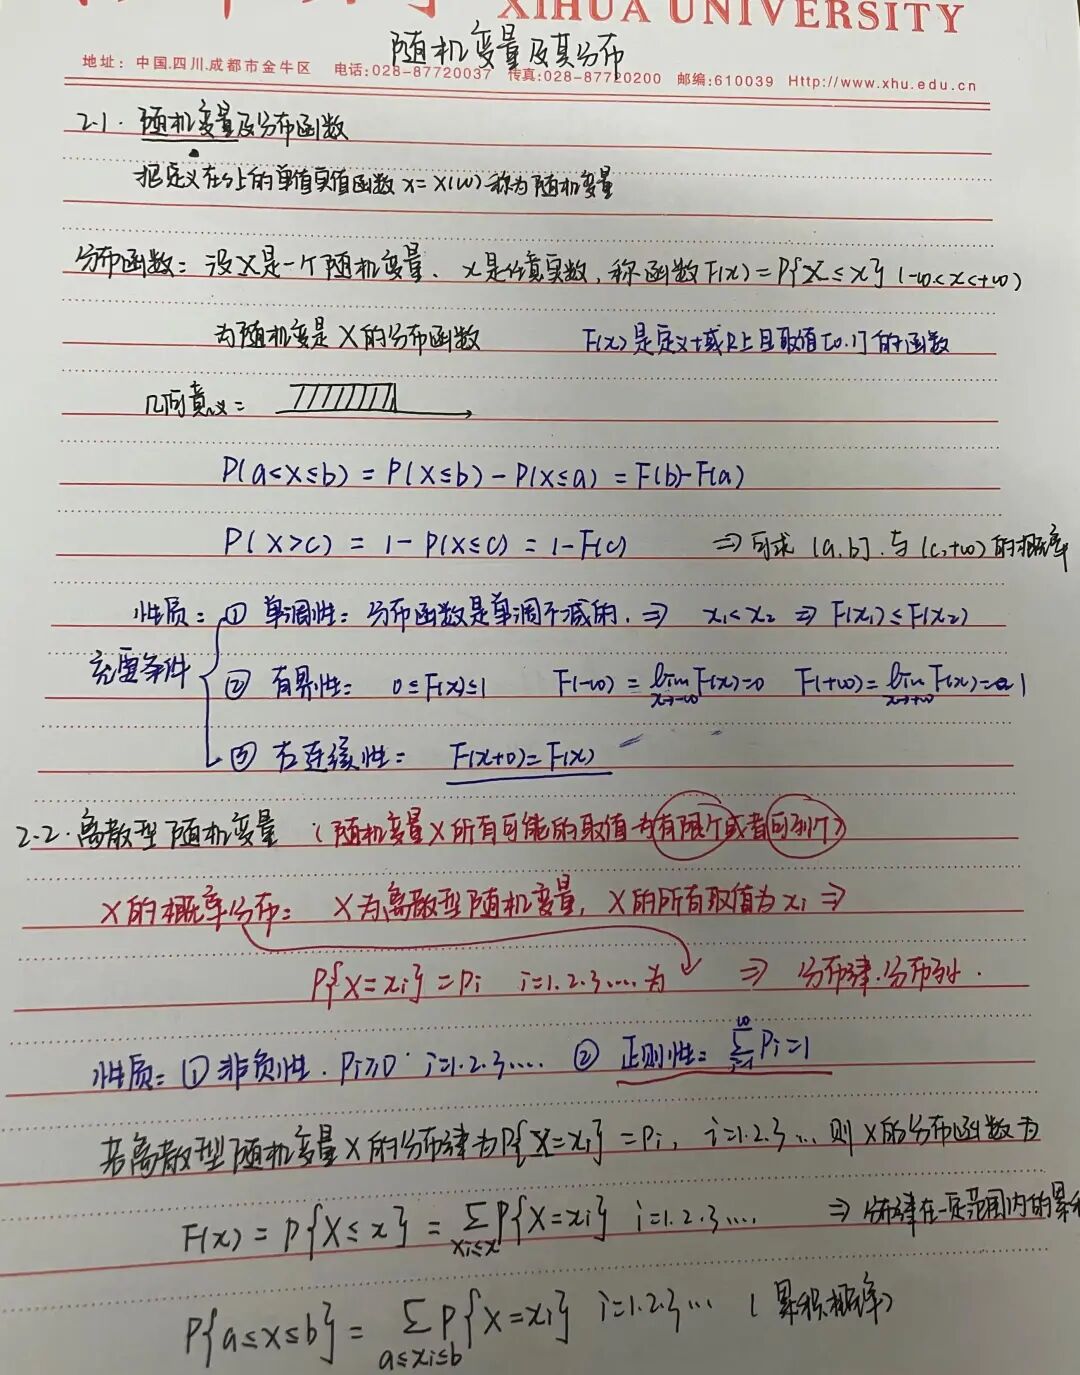 XIHUA UNIVERSITY
随机变量及其分布
地址：中国.四川.成都市金牛区 电话:028-87720037 传真:028-87720200 邮编:610039 Http://www.xhu.edu.cn
2.1. 随机变量及分布函数
把定义在Ω上的单值实值函数 X=X(ω) 称为随机变量
分布函数：设X是一个随机变量. x是任意实数, 称函数F(x)=P{X≤x} (-∞<x<+∞)
为随机变量X的分布函数 F(x)是定义域R上且取值[0.1]的函数
几何意义：
P(a<X≤b) = P(X≤b) - P(X≤a) = F(b)-F(a)
P(X>c) = 1-P(X≤c) = 1-F(c) ⇒ 可求 (a,b].与(c,+∞)的概率
性质：① 单调性：分布函数是单调不减的. ⇒ x₁<x₂ ⇒ F(x₁)≤F(x₂)
充要条件
② 有界性： 0≤F(x)≤1 F(-∞) = lim x→-∞ F(x)=0 F(+∞) = lim x→+∞ F(x)=1
③ 右连续性： F(x+0)=F(x)
2.2.离散型随机变量 (随机变量X所有可能的取值为有限个或者可列个)
X的概率分布： X为离散型随机变量, X的所有取值为xi ⇒
P{X=xi}=Pi i=1.2.3.... 为 ⇒ 分布律.分布列.
性质：① 非负性. Pi≥0 i=1.2.3.... ② 正则性： ∞ ∑ i=1 Pi=1
若离散型随机变量X的分布律为P{X=xi}=Pi, i=1.2.3... 则X的分布函数为
F(x) = P{X≤x} = ∑ xi≤x P{X=xi} i=1.2.3.... ⇒ 分布律在一定范围内的累积
P{a≤X≤b} = ∑ a≤xi≤b P{X=xi} i=1.2.3... (累积概率)